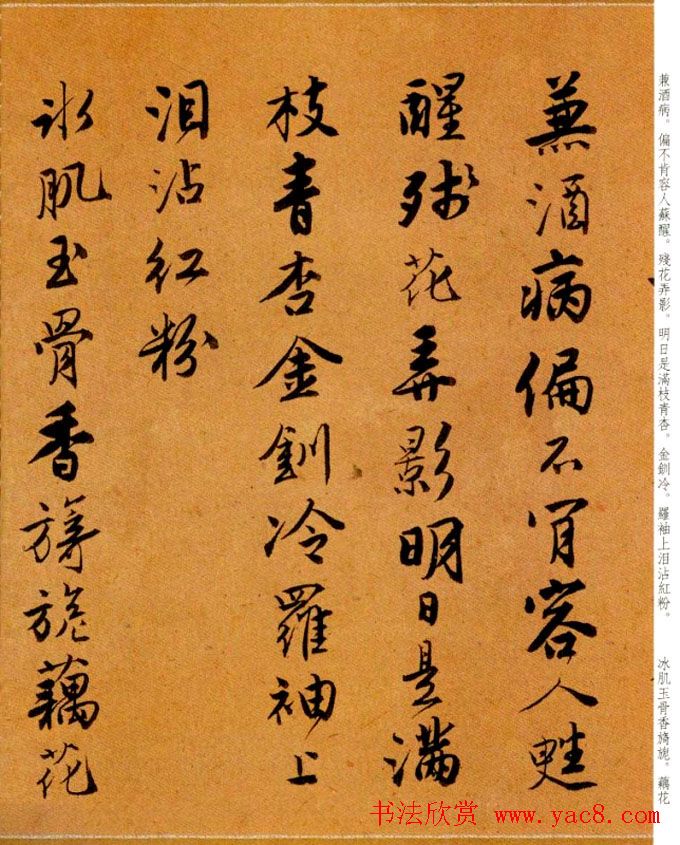 兼酒病偏不肯容人甦
醒残花弄影明日是滿
枝青杏金釧冷羅袖上
泪沾红粉
冰肌玉骨香旖旎藕花
兼酒病。偏不肯容人蘇醒。殘花弄影。明日是滿枝青杏。金釧冷。羅袖上泪沾紅粉。 冰肌玉骨香旖旎。藕花
书法欣赏 www.yac8.com